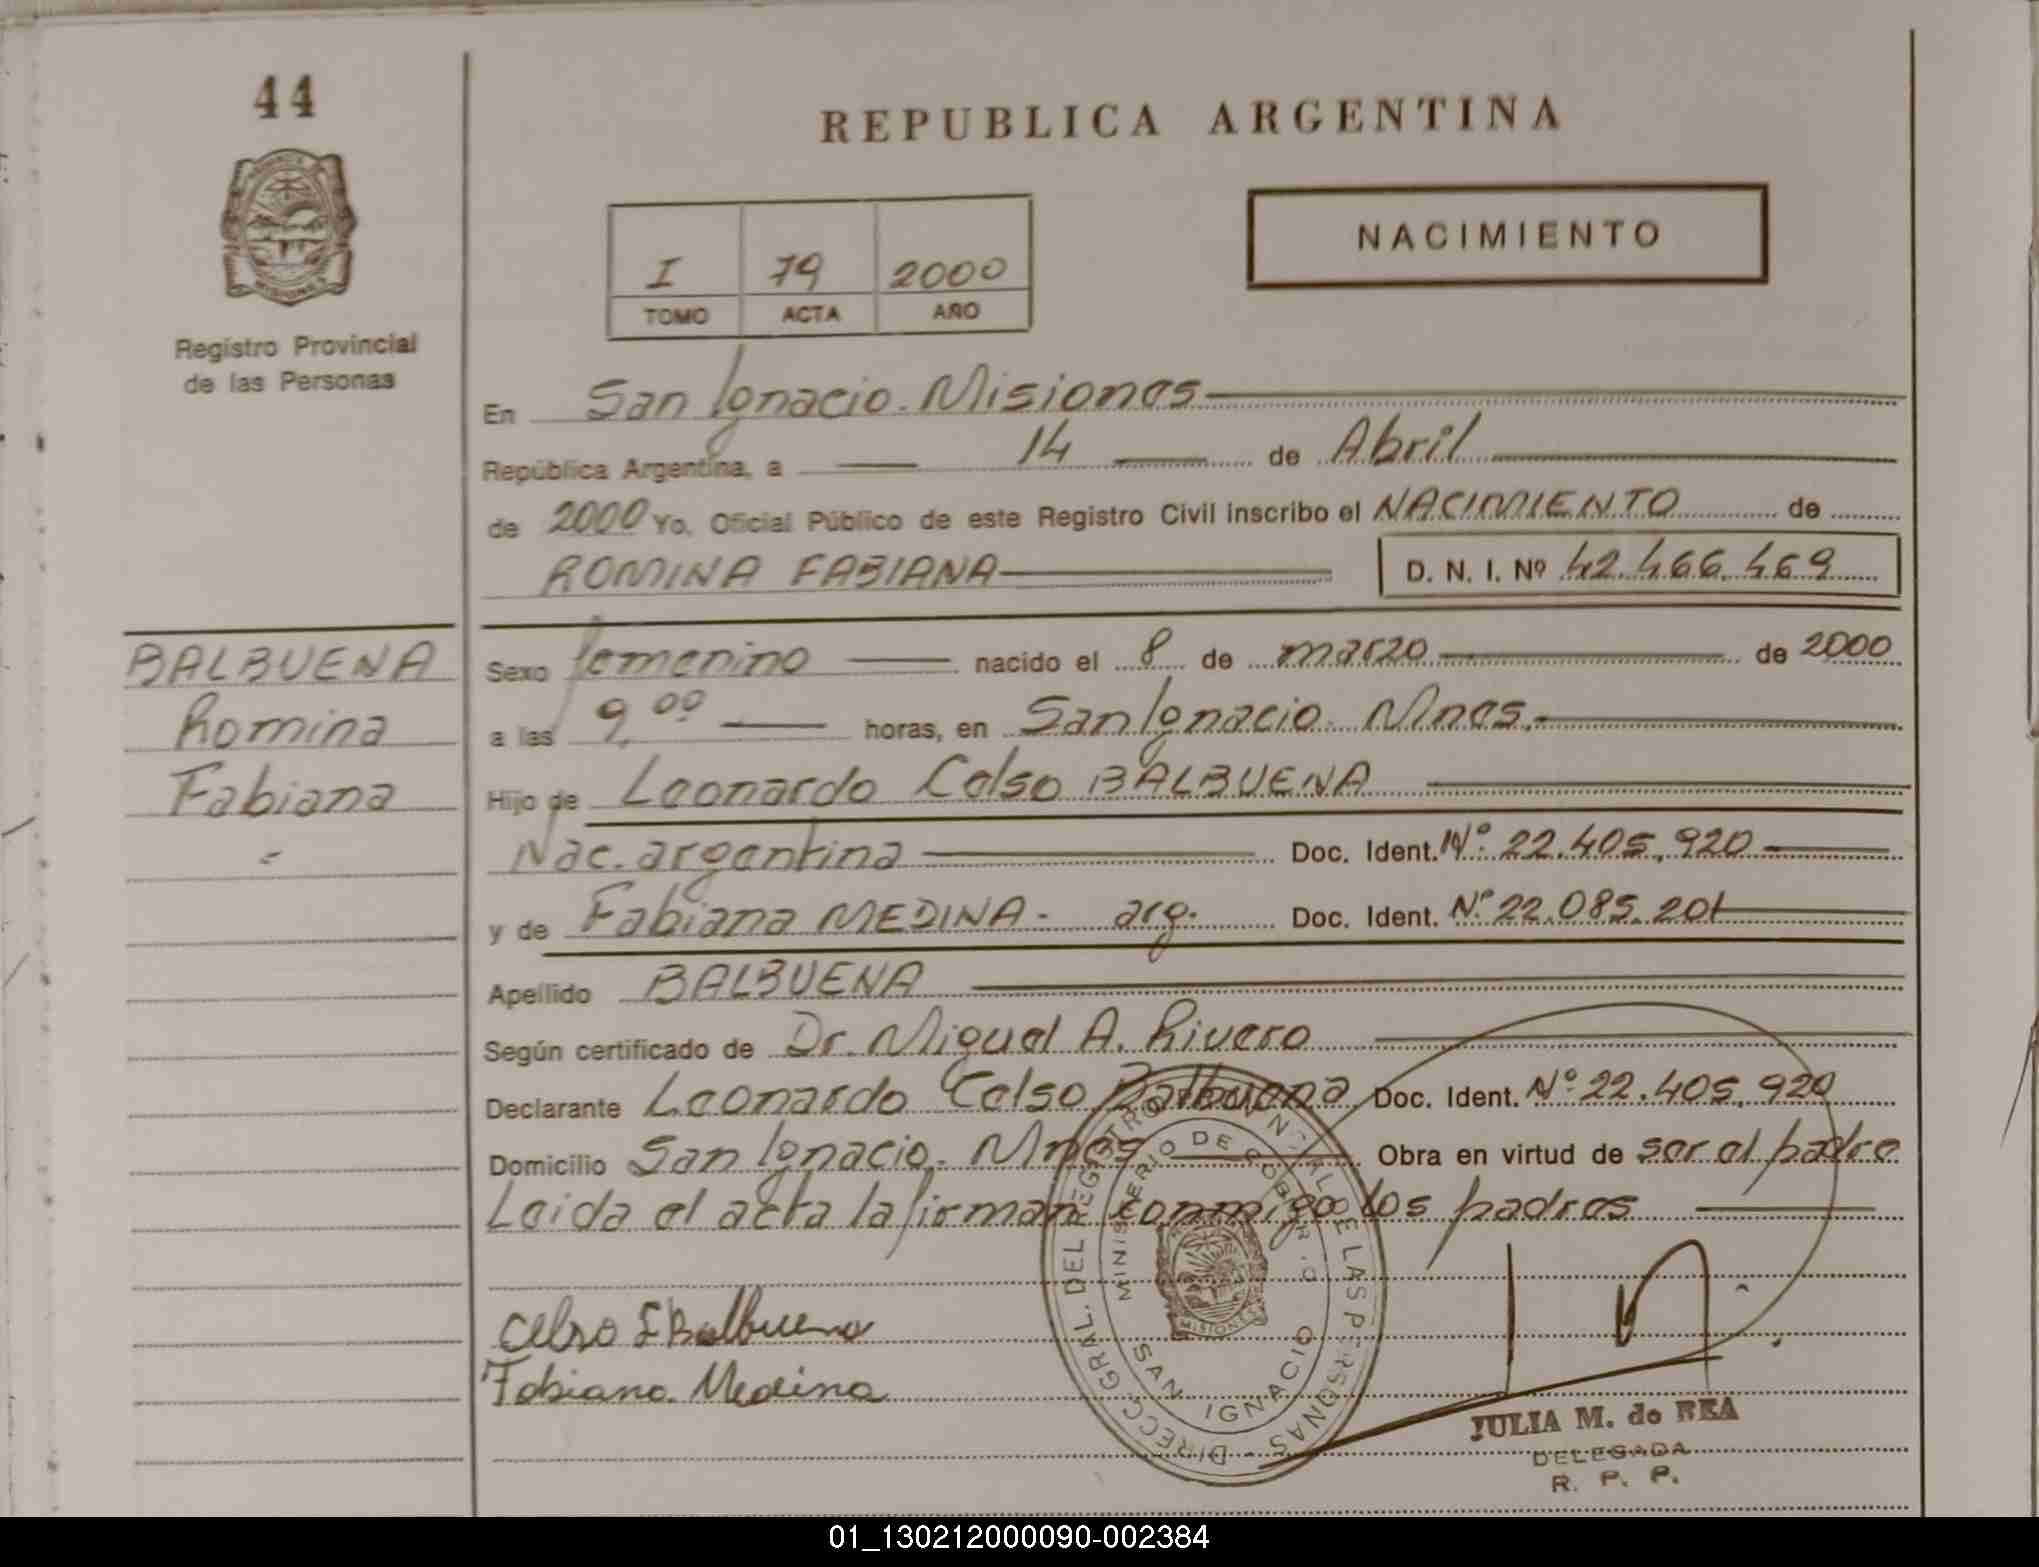 44
REPUBLICA ARGENTINA
NACIMIENTO
I 79 2000
TOMO ACTA AÑO
MISIONES
Registro Provincial
de las Personas
En San Ignacio. Misiones
República Argentina, a 14 de Abril
de 2000 Yo, Oficial Público de este Registro Civil inscribo el NACIMIENTO de
ROMINA FABIANA D. N. I. Nº 42.466.469
BALBUENA
Romina
Fabiana
Sexo femenino nacido el 8 de marzo de 2000
a las 9,00 horas, en San Ignacio. Mnes.
Hijo de Leonardo Celso BALBUENA
Nac. argentina Doc. Ident. Nº 22.405.920
y de Fabiana MEDINA - arg. Doc. Ident. Nº 22.085.201
Apellido BALBUENA
Según certificado de Dr. Miguel A. Rivero
Declarante Leonardo Celso Balbuena Doc. Ident. Nº 22.405.920
Domicilio San Ignacio. Mnes Obra en virtud de ser el padre
Leida el acta la firman conmigo los padres
Celso L Balbuena
Fabiana Medina
DIRECC. GRAL. DEL REGISTRO PROVINCIAL DE LAS PERSONAS
MINISTERIO DE GOBIERNO
MISIONES
SAN IGNACIO
JULIA M. de REA
DELEGADA
R. P. P.
01_130212000090-002384